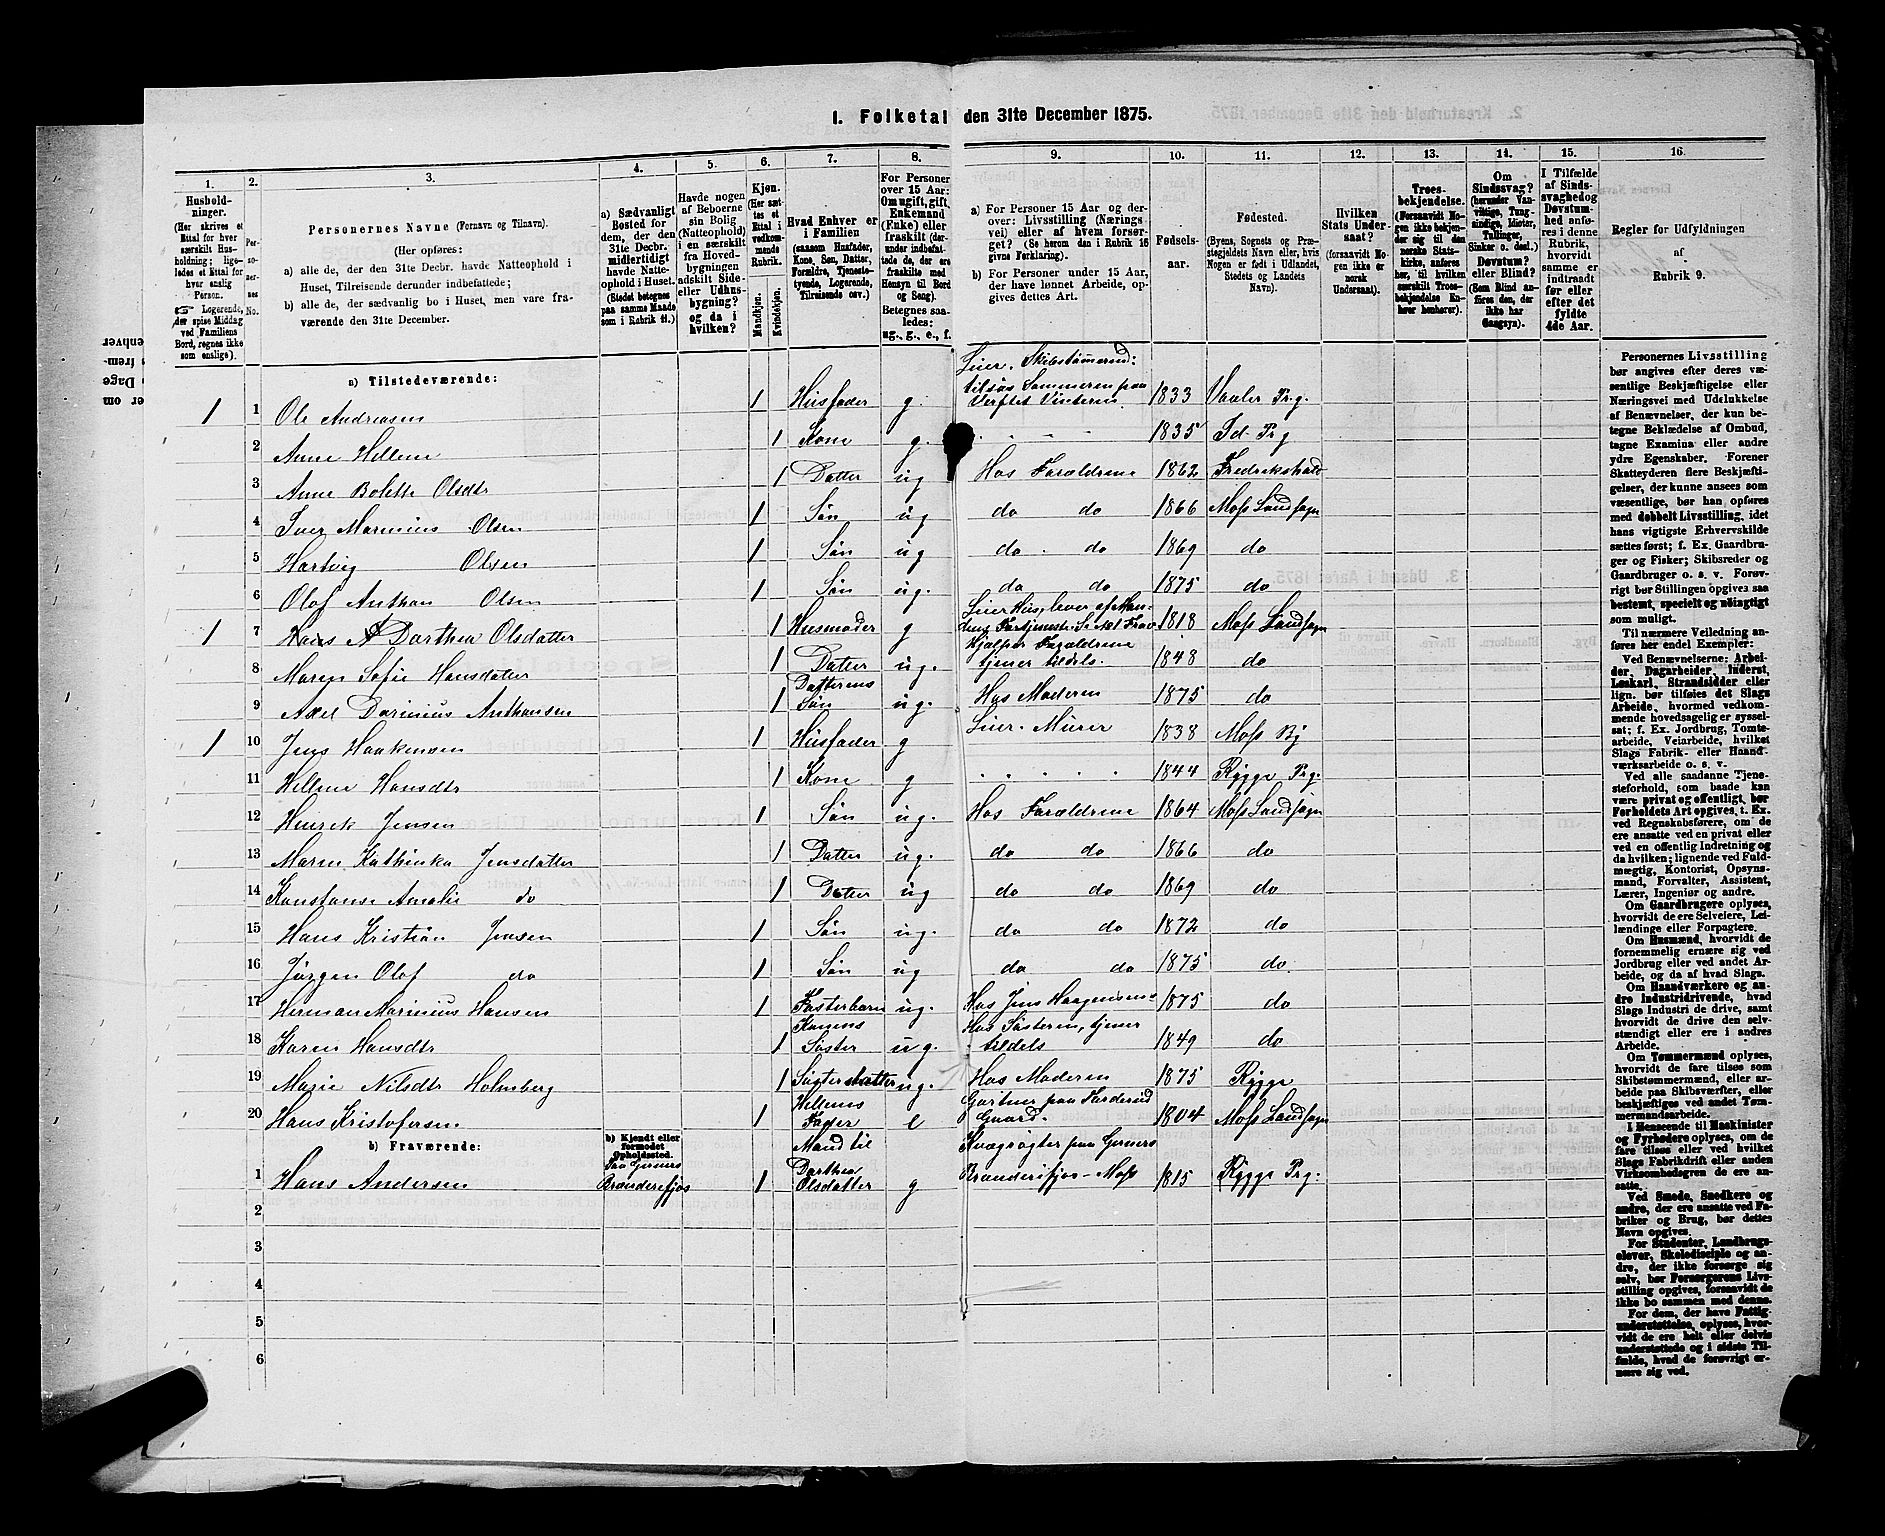 I. Folketal den 31te December 1875.
1. 2. 3. 4. 5. 6. 7. 8. 9. 10. 11. 12. 13. 14. 15. 16.
Husholdninger.
(Her skrives et Ettal for hver særskilt Husholdning; ligeledes et Ettal for hver enslig Person.
Logerende, der spise Middag ved Familiens Bord, regnes ikke som enslige).
Personernes No.
Personernes Navne (Fornavn og Tilnavn).
(Her opføres:
a) alle de, der den 31te Decbr. havde Natteophold i Huset, Tilreisende derunder indbefattede;
b) alle de, der sædvanlig bo i Huset, men vare fraværende den 31te December.
a) Sædvanligt Bosted for dem, der den 31te Decbr. midlertidigt havde Natteophold i Huset. (Stedet betegnes paa samme Maade som i Rubrik 11.)
Havde nogen af Beboerne sin Bolig (Natteophold) i en særskilt fra Hovedbygningen adskilt Side- eller Udhusbygning? og da i hvilken?
Kjøn. (Her sættes et Ettal i vedkommende Rubrik.
Mandkjøn. Kvindekjøn.
Hvad Enhver er i Familien (saasom Husfader, Kone, Søn, Datter, Forældre, Tjenestetyende, Logerende, Tilreisende osv.)
For Personer over 15 Aar: Om ugift, gift, Enkemand (Enke) eller fraskilt (derunder indbefattede de, der ere fraskilte med Hensyn til Bord og Seng). Betegnes saaledes: ug., g., e., f.
a) For Personer 15 Aar og derover: Livsstilling (Næringsvei) eller af hvem forsørget? (Se herom den i Rubrik 16 givne Forklaring).
b) For Personer under 15 Aar, der have lønnet Arbeide, opgives dettes Art.
Fødselsaar.
Fødested.
(Byens, Sognets og Præstegjeldets Navn eller, hvis Nogen er født i Udlandet, Stedets og Landets Navn).
Hvilken Stats Undersaat? (forsaavidt Nogen ikke er norsk Undersaat).
Troesbekjendelse. (Forsaavidt Nogen ikke bekjender sig til den norske Statskirke, anføres her, til hvilken særskilt Troesbekjendelse Enhver henhører).
Om Sindssvag? (herunder Vanvittige, Tungsindige, Idioter, Tullinger, Sinker o. desl.) Døvstum? eller Blind? (Som Blind anføres den, der ikke har Gangsyn).
I Tilfælde af Sindssvaghed og Døvstumhed anføres i denne Rubrik, hvorvidt samme er indtraadt før eller efter det fyldte 4de Aar.
Regler for Udfyldningen af Rubrik 9.
a) Tilstedeværende:
1 1 Ole Andreasen 1 Husfader g. Leier. Skibstømmermd: tilsøs Sommeren paa Verftet Vinteren. 1833 Vaaler Prg.
2 Anne Hellene 1 Kone g. 1835 Id Prg
3 Anne Bolette Olsdtr 1 Datter ug Hos Forældrene 1862 Fredrikshald
4 Iver Marinius Olsen 1 Søn ug do do 1866 Moss Landsogn
5 Hartvig Olsen 1 Søn ug do do 1869 do
6 Olof Anthon Olsen 1 Søn ug. do do 1875 do
1 7 Dorthea Olsdatter 1 Husmoder g 1818 Moss Landsogn
8 Maren Sofie Hansdatter 1 Datter ug. Hjælper Forældrene tjener tildels. 1848 do
9 Axel Darinius Anthonsen 1 Datterens Søn ug. Hos Moderen 1875 do
1 10 Jens Haakensen 1 Husfader g Leier. Murer 1838 Moss By
11 Hellene Hansdtr 1 Kone g 1844 Rygge Prg.
12 Henrik Jensen 1 Søn ug. Hos Forældrene 1864 Moss Landsogn
13 Maren Kathinka Jensdatter 1 Datter ug. do do 1866 do
14 Konstanse Amalie do 1 Datter ug do do 1869 do
15 Hans Kristian Jensen 1 Søn ug. do do 1872 do
16 Jørgen Olof do 1 Søn ug do do 1875 do
17 Herman Marinius Hansen 1 Fosterbarn ug. Hos Jens Haagensens 1875 do
18 Karen Hansdtr 1 Konens Søster ug. Hos Søsteren, tjener tildels 1849 do
19 Marie Nilsdtr Holmberg 1 Søsterdatter ug. Hos Moderen 1875 Rygge
20 Hans Kristofersen 1 Hellenes Fader e Gartner paa Gaard. 1804 Moss Landsogn
b) Fraværende:
b) Kjendt eller formodet Opholdssted.
1 Hans Andersen Paa Gerners Brænderefjøs 1 Mand til Dorthea Olsdatter g Kvægrøgter paa Gerners Brænderifjøs - Moss 1815 Rygge Prg:
2
3
4
5
6
Personernes Livsstilling bør angives efter deres væsentlige Beskjæftigelse eller Næringsvei med Udelukkelse af Benævnelser, der kun betegne Beklædelse af Ombud, tagne Examina eller andre ydre Egenskaber. Forener Skatteyderen flere Beskjæftigelser, der kunne ansees som væsentlige, bør han opføres med dobbelt Livsstilling, idet hans vigtigste Erhvervskilde sættes først; f. Ex. Gaardbruger og Fisker; Skibsreder og Gaardbruger o. s. v. Forøvrigt bør Stillingen opgives saa bestemt, specielt og nøiagtigt som muligt.
Til nærmere Veiledning anføres her endel Exempler:
Ved Benævnelserne: Arbeider, Dagarbeider, Inderst, Løskarl, Strandsidder eller lign. bør tilføies det Slags Arbeide, hvormed vedkommende hovedsagelig er sysselsat; f. Ex. Jordbrug, Tomtearbeide, Veiarbeide, hvilket Slags Fabrik- eller Haandværksarbeide o. s. v.
Ved alle saadanne Tjenesteforhold, som baade kan være privat og offentligt, bør Forholdets Art opgives, t. Ex. ved Regnskabsførere, om de ere ansatte ved en privat eller ved en offentlig Indretning og da hvilken; lignende ved Fuldmægtig, Kontorist, Opsynsmand, Forvalter, Assistent, Lærer, Ingeniør og andre.
Om Gaardbrugere oplyses, hvorvidt de ere Selveiere, Leilændinge eller Forpagtere.
Om Husmænd, hvorvidt de fornemmelig ernære sig ved Jordbrug eller ved andet Arbeide, og da af hvad Slags.
Om Haandværkere og andre Industridrivende, hvad Slags Industri de drive, samt hvorvidt de drive den selvstændigt eller ere i andres Arbeide.
Om Tømmermænd oplyses, hvorvidt de fare tilsøs som Skibstømmermænd, eller arbeide paa Skibsværfter, eller beskjæftiges ved andet Tømmermandsarbeide.
I Henseende til Maskinister og Fyrbødere oplyses, om de fare tilsøs eller ved hvilket Slags Fabrikdrift eller anden Virksomhed de ere ansatte.
Ved Smede, Snedkere og andre, der ere ansatte ved Fabriker og Brug, bør dettes Navn opgives.
For Studenter, Landbrugselever, Skoledisciple og andre, der ikke forsørge sig selv, bør Forsørgerens Livsstilling opgives, forsaavidt de ikke bo sammen med denne.
For dem, der have Fattigunderstøttelse, oplyses, hvorvidt de ere helt eller delvis understøttede og i sidste Tilfælde, hvad de forøvrigt ernære sig ved.